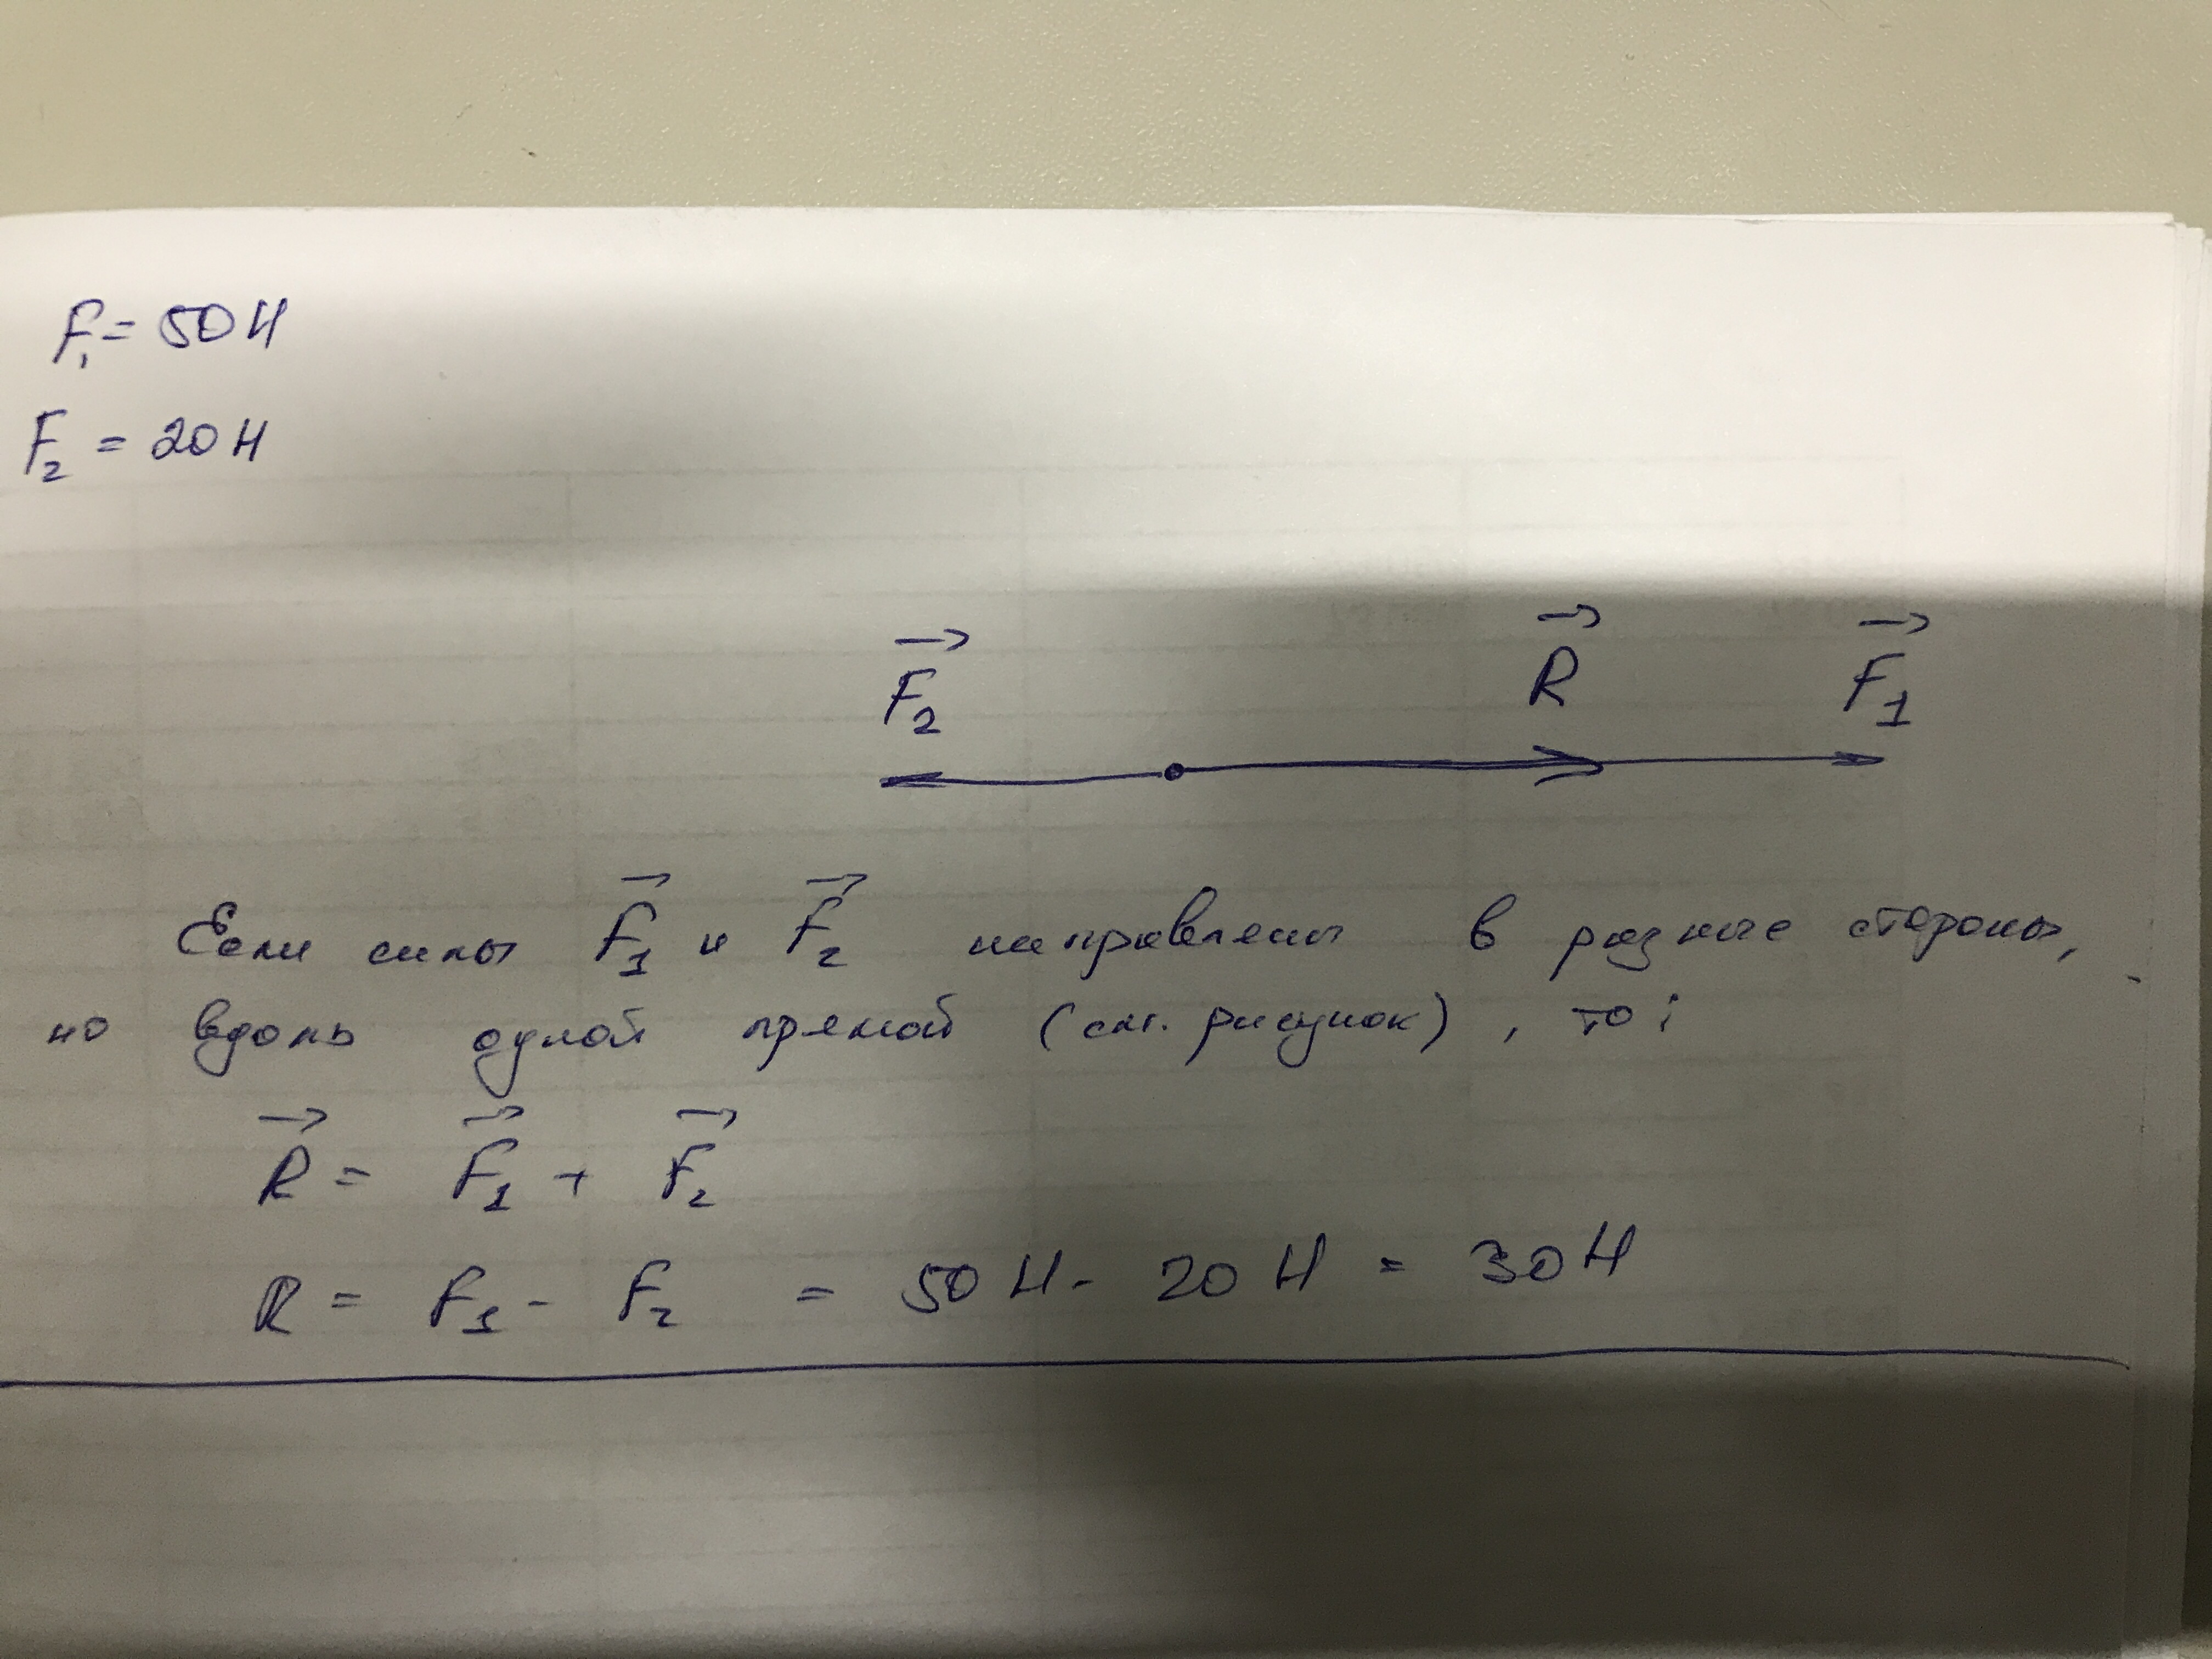 F₁ = 50 Н
F₂ = 20 Н
F₂ R F₁
Если силы F₁ и F₂ направлены в разные стороны,
но вдоль одной прямой (см. рисунок), то:
R = F₁ + F₂
R = F₁ - F₂ = 50 Н - 20 Н = 30 Н